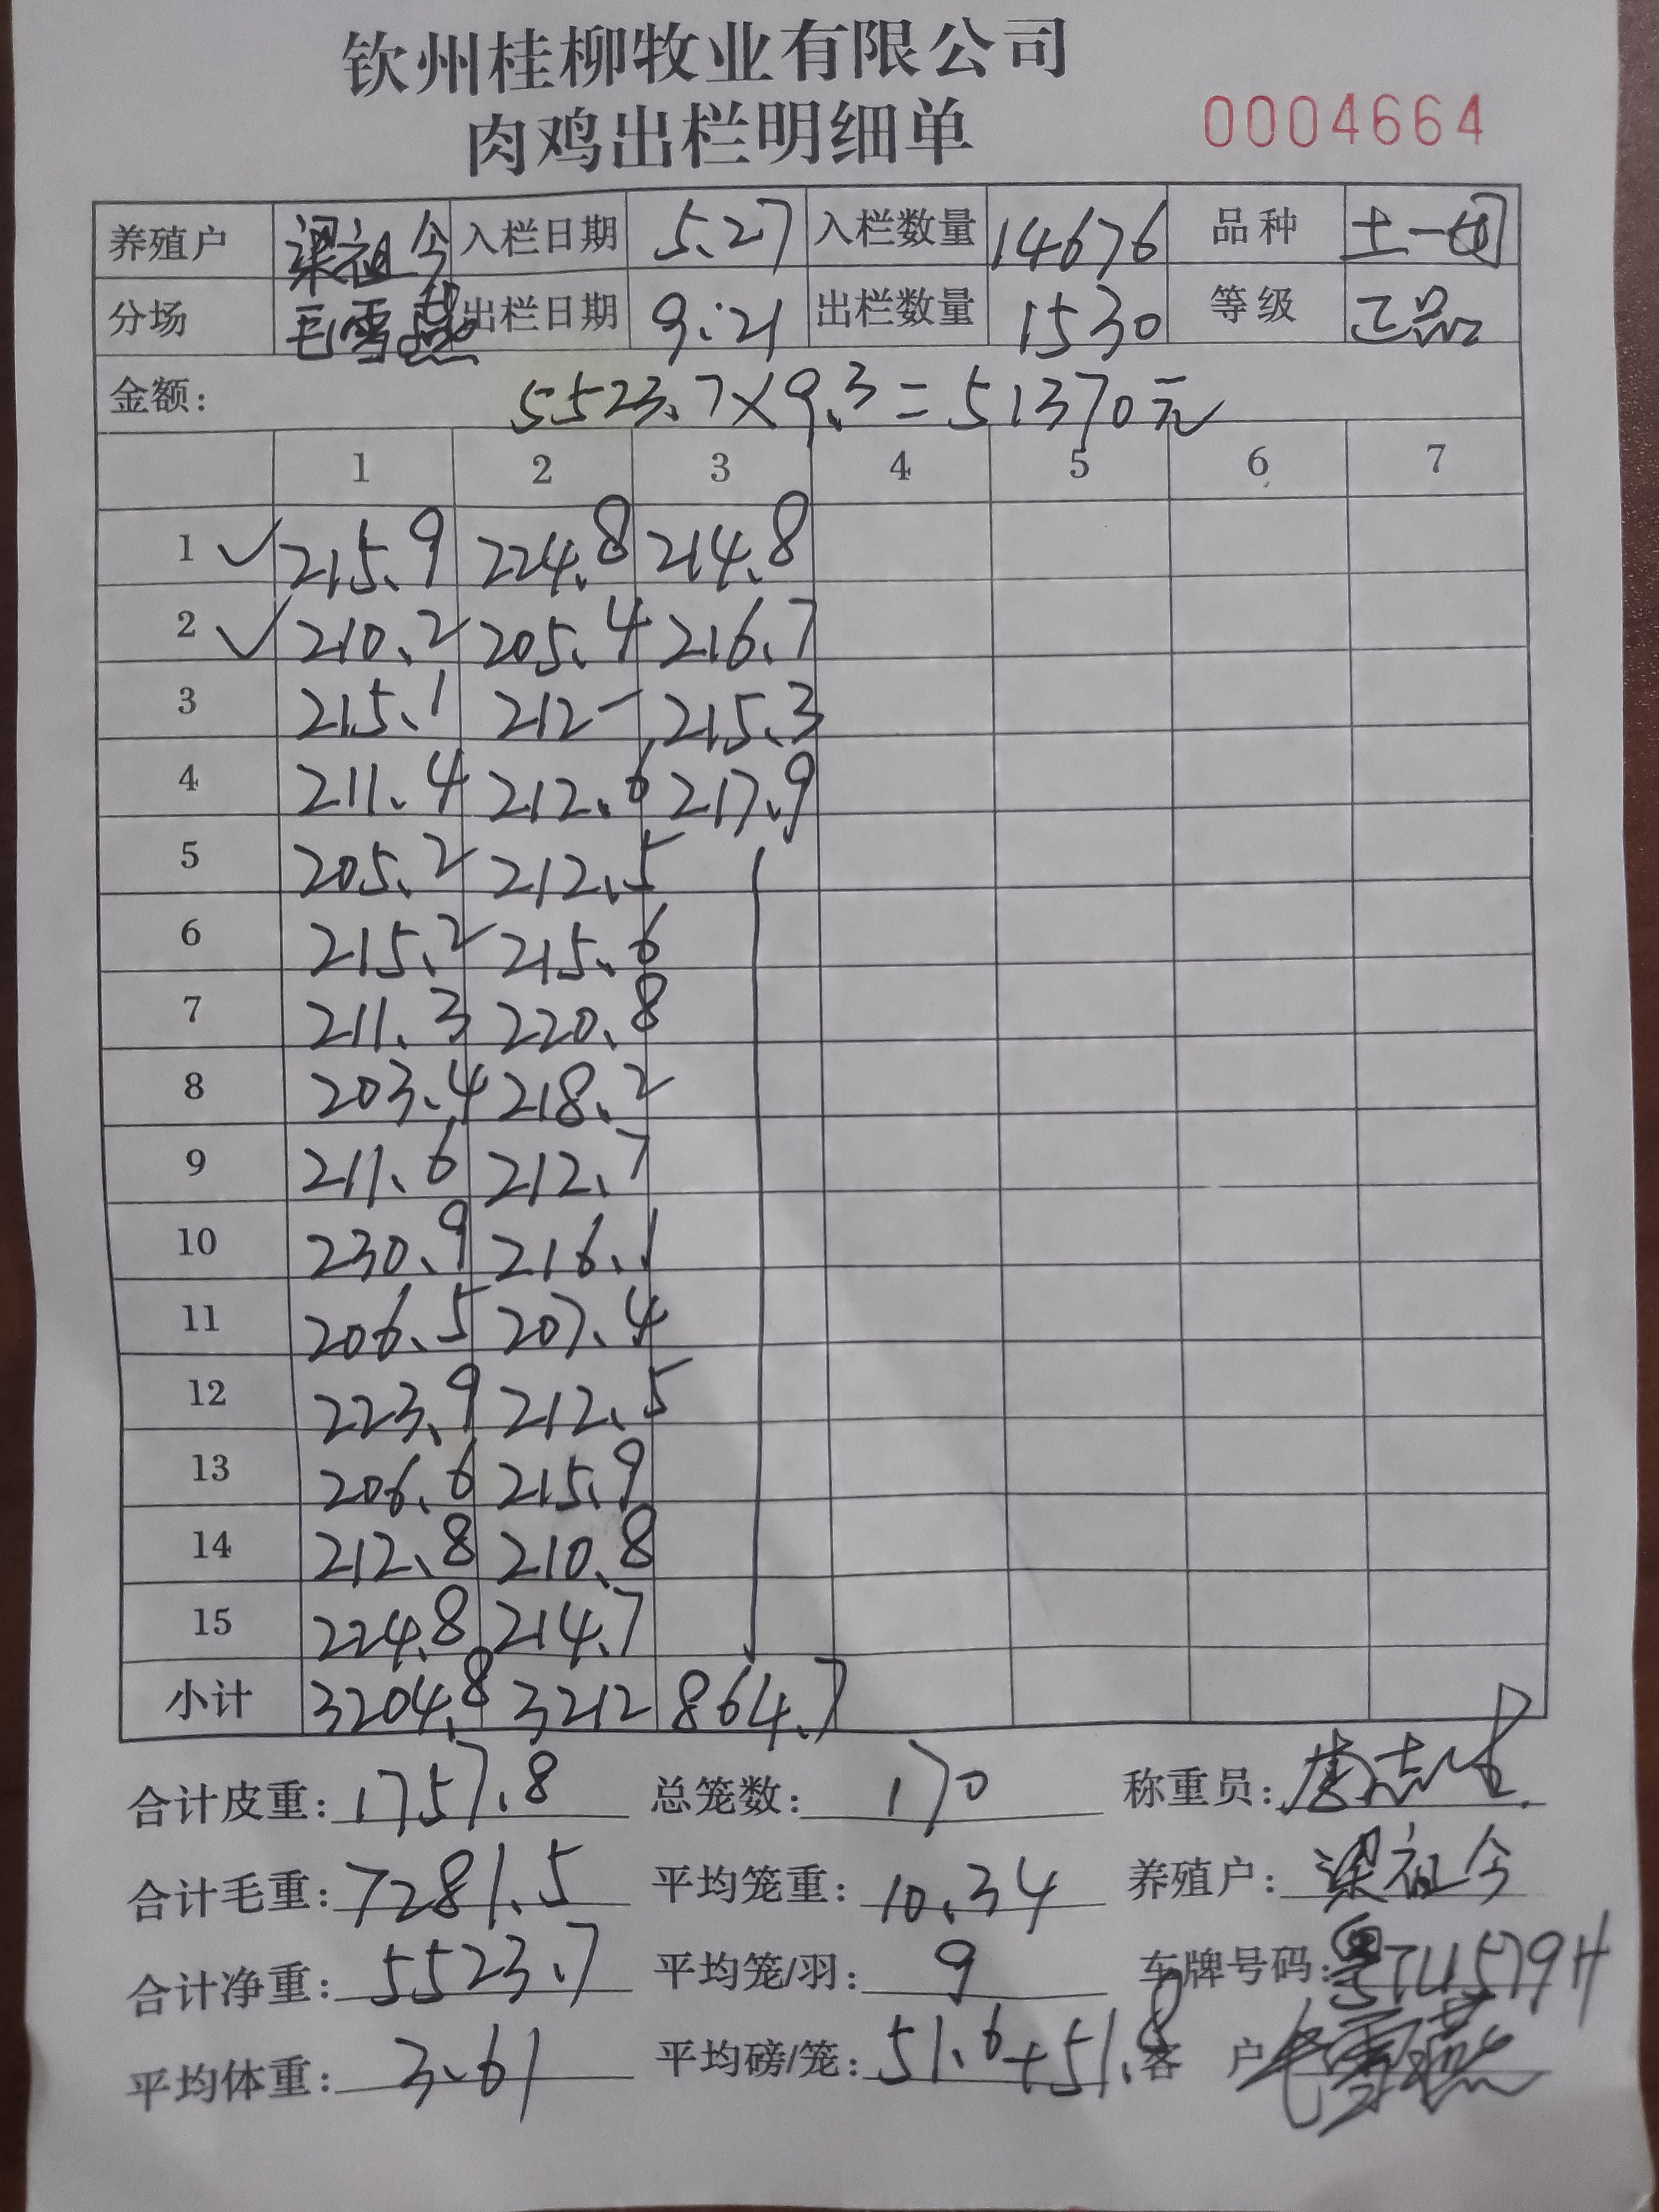 钦州桂柳牧业有限公司
肉鸡出栏明细单 0004664
养殖户 梁祖今 入栏日期 5.27 入栏数量 14676 品种 土一
分场 毛雪燕 出栏日期 9.21 出栏数量 1530 等级 正品
金额: 5523.7×9.3=51370元
1 2 3 4 5 6 7
1 ✓ 215.9 224.8 214.8
2 ✓ 210.2 205.4 216.7
3 215.1 212- 215.3
4 211.4 212.6 217.9
5 205.2 212.5
6 215.2 215.6
7 211.3 220.8
8 203.4 218.2
9 211.6 212.7
10 230.9 216.1
11 206.5 207.4
12 223.9 212.5
13 206.6 215.9
14 212.8 210.8
15 224.8 214.7
小计 3204.8 3212 864.7
合计皮重: 1757.8 总笼数: 170 称重员:
合计毛重: 7281.5 平均笼重: 10.34 养殖户: 梁祖今
合计净重: 5523.7 平均笼/羽: 9 车牌号码: 粤TU579H
平均体重: 3.61 平均磅/笼: 51.6+51.8 客 户 毛雪燕